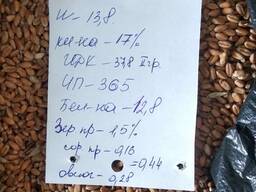 W - 13,8
кл-ка - 17%
ИДК - 378 II гр.
ЧП - 365
Бел-ка - 12,8
Зер пр - 1,5%
сор пр - 0,16
= 0,44
- 0,28